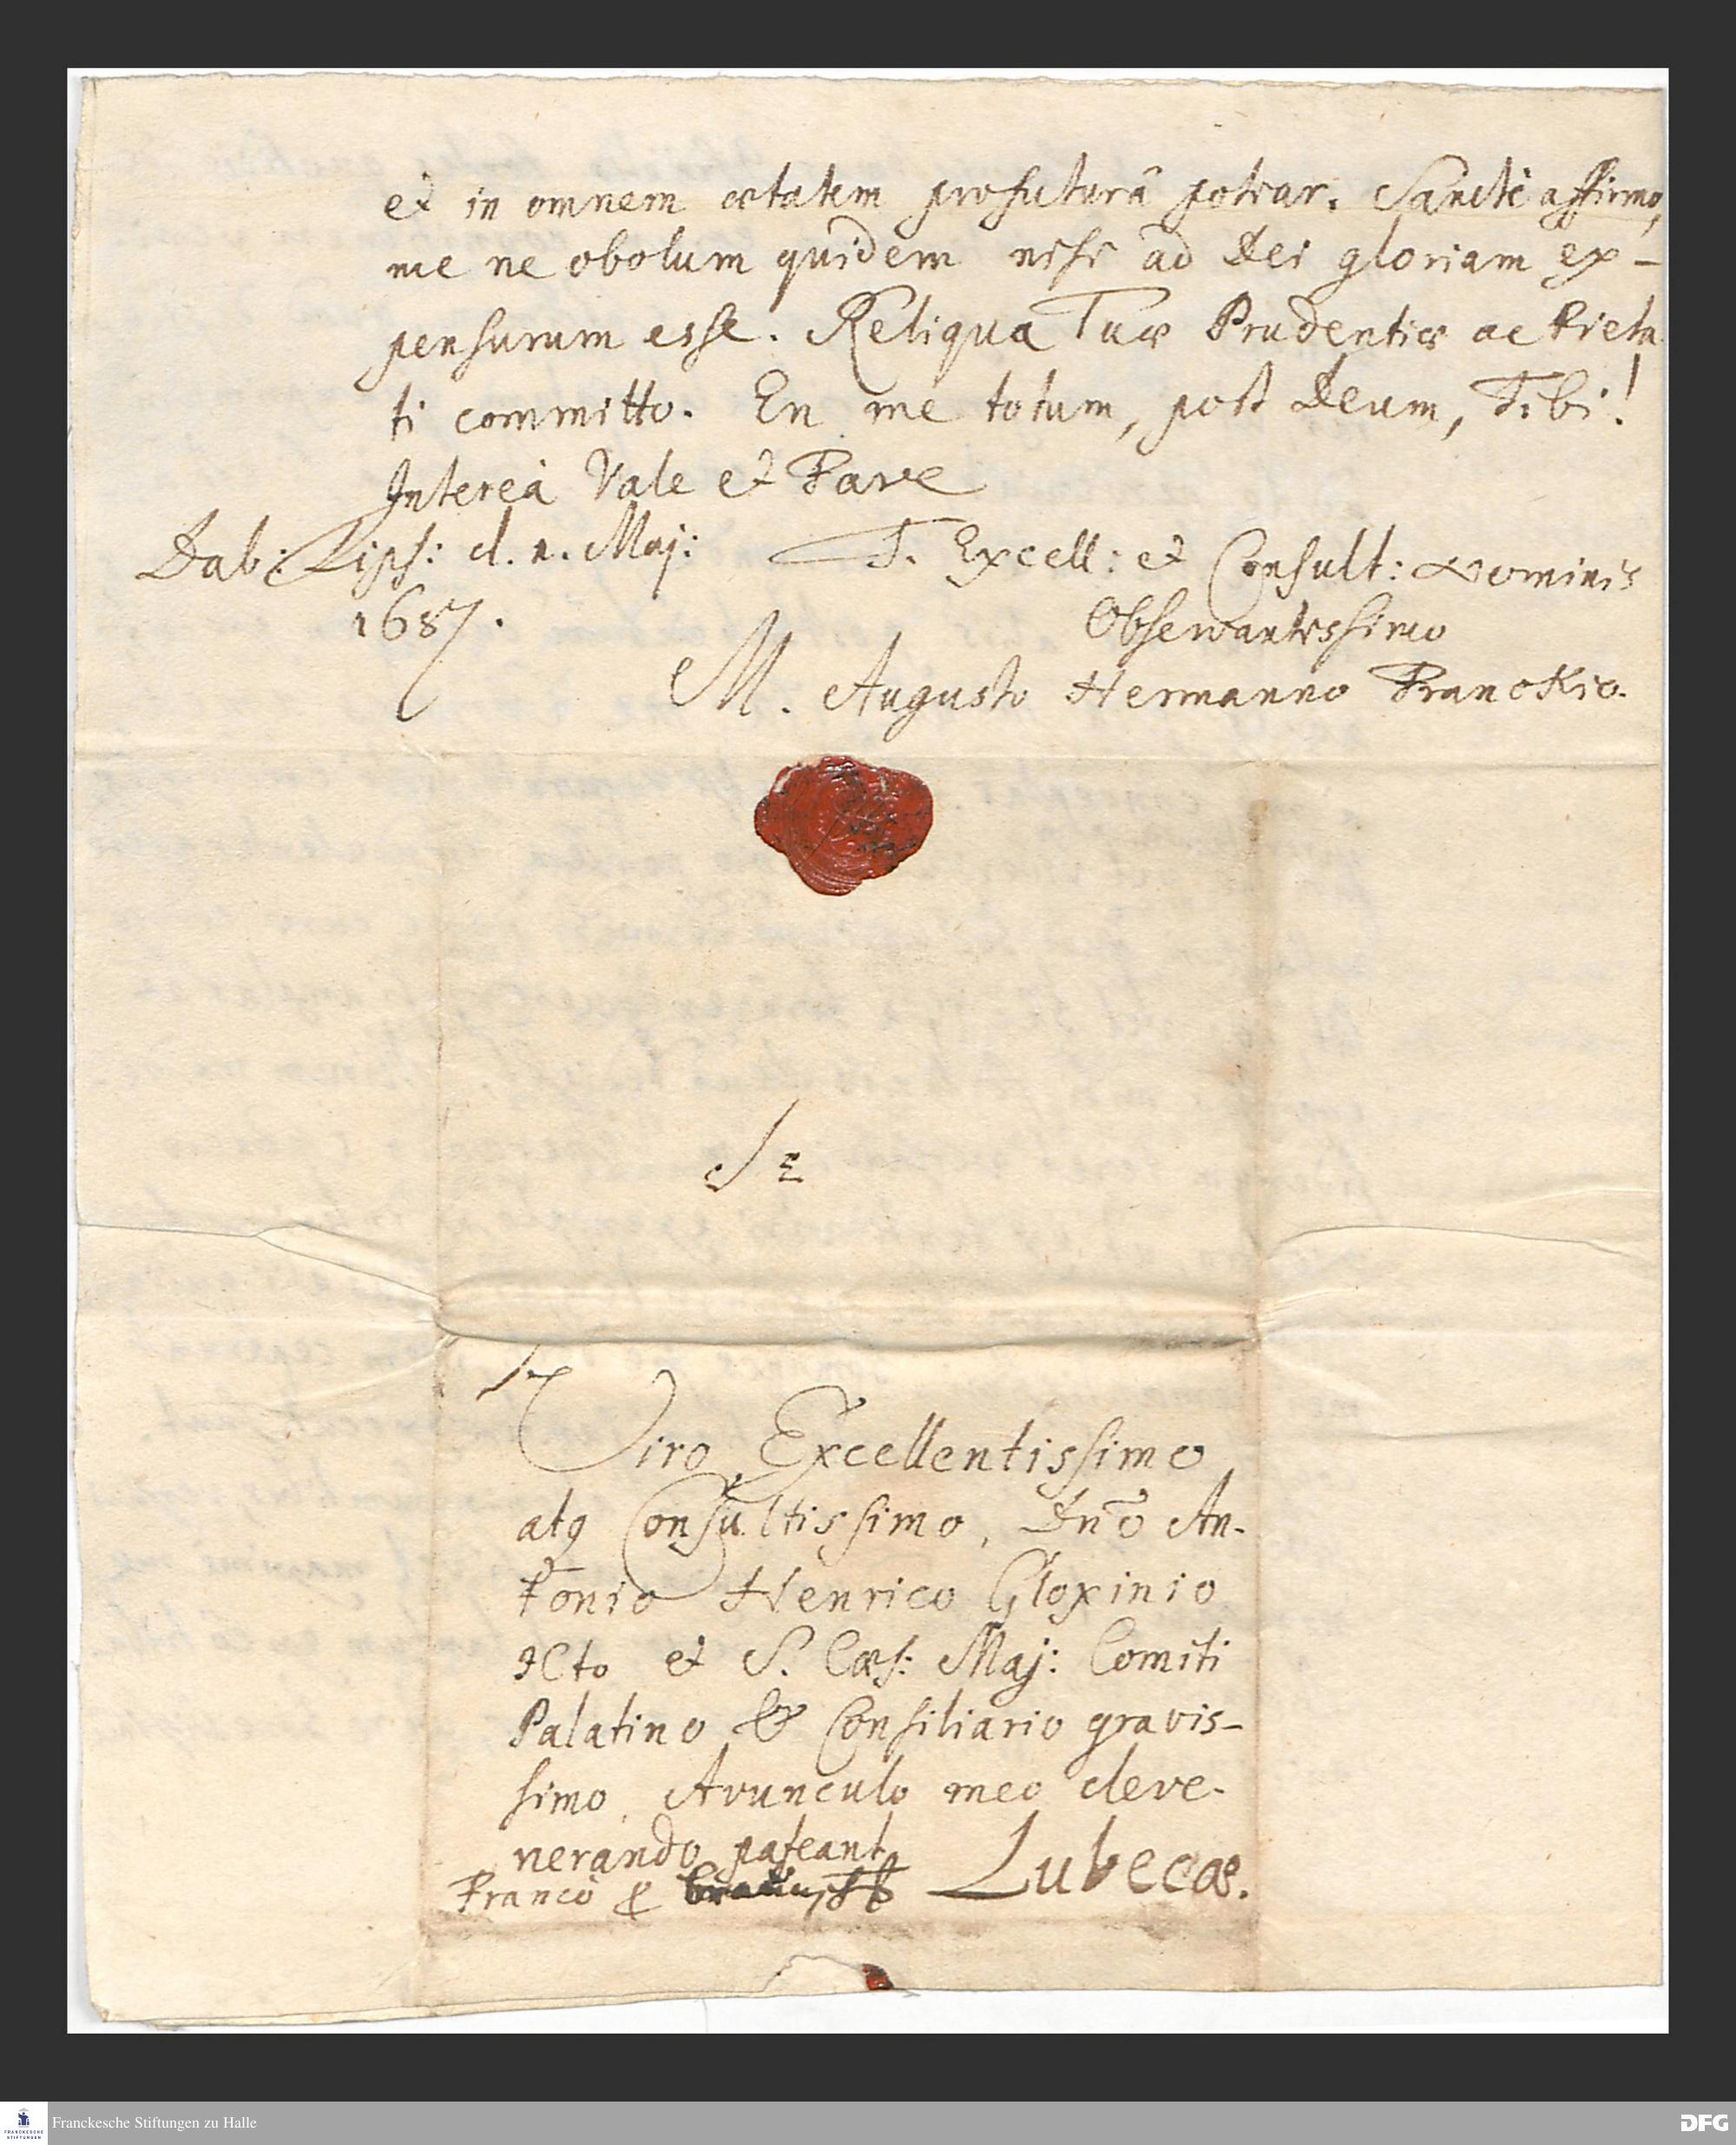 et in omnem ætatem profuturâ potiar. Sanctè affirmo,
me ne obolum quidem nisi ad Dei gloriam ex-
pensurum esse. Reliqua Tuæ Prudentiæ ac Pieta
ti committo. En me totum, post Deum, Tibi!
Intereà Vale et Fave
Dab: Lips: d. 2. Maj:
1687.
T. Excell: et Consult: Nominis
Observantissimo
M. Augusto Hermanno Franckio.
Viro Excellentissimo
atq Consultissimo, Dnō An-
tonio Henrico Gloxinio
ICto et S. Cæs: Maj: Comiti
Palatino & Consiliario gravis-
simo, Avunculo meo deve-
nerando pateant
Franco
Lubecæ.
Franckesche Stiftungen zu Halle
FRANCKESCHE
STIFTUNGEN
DFG